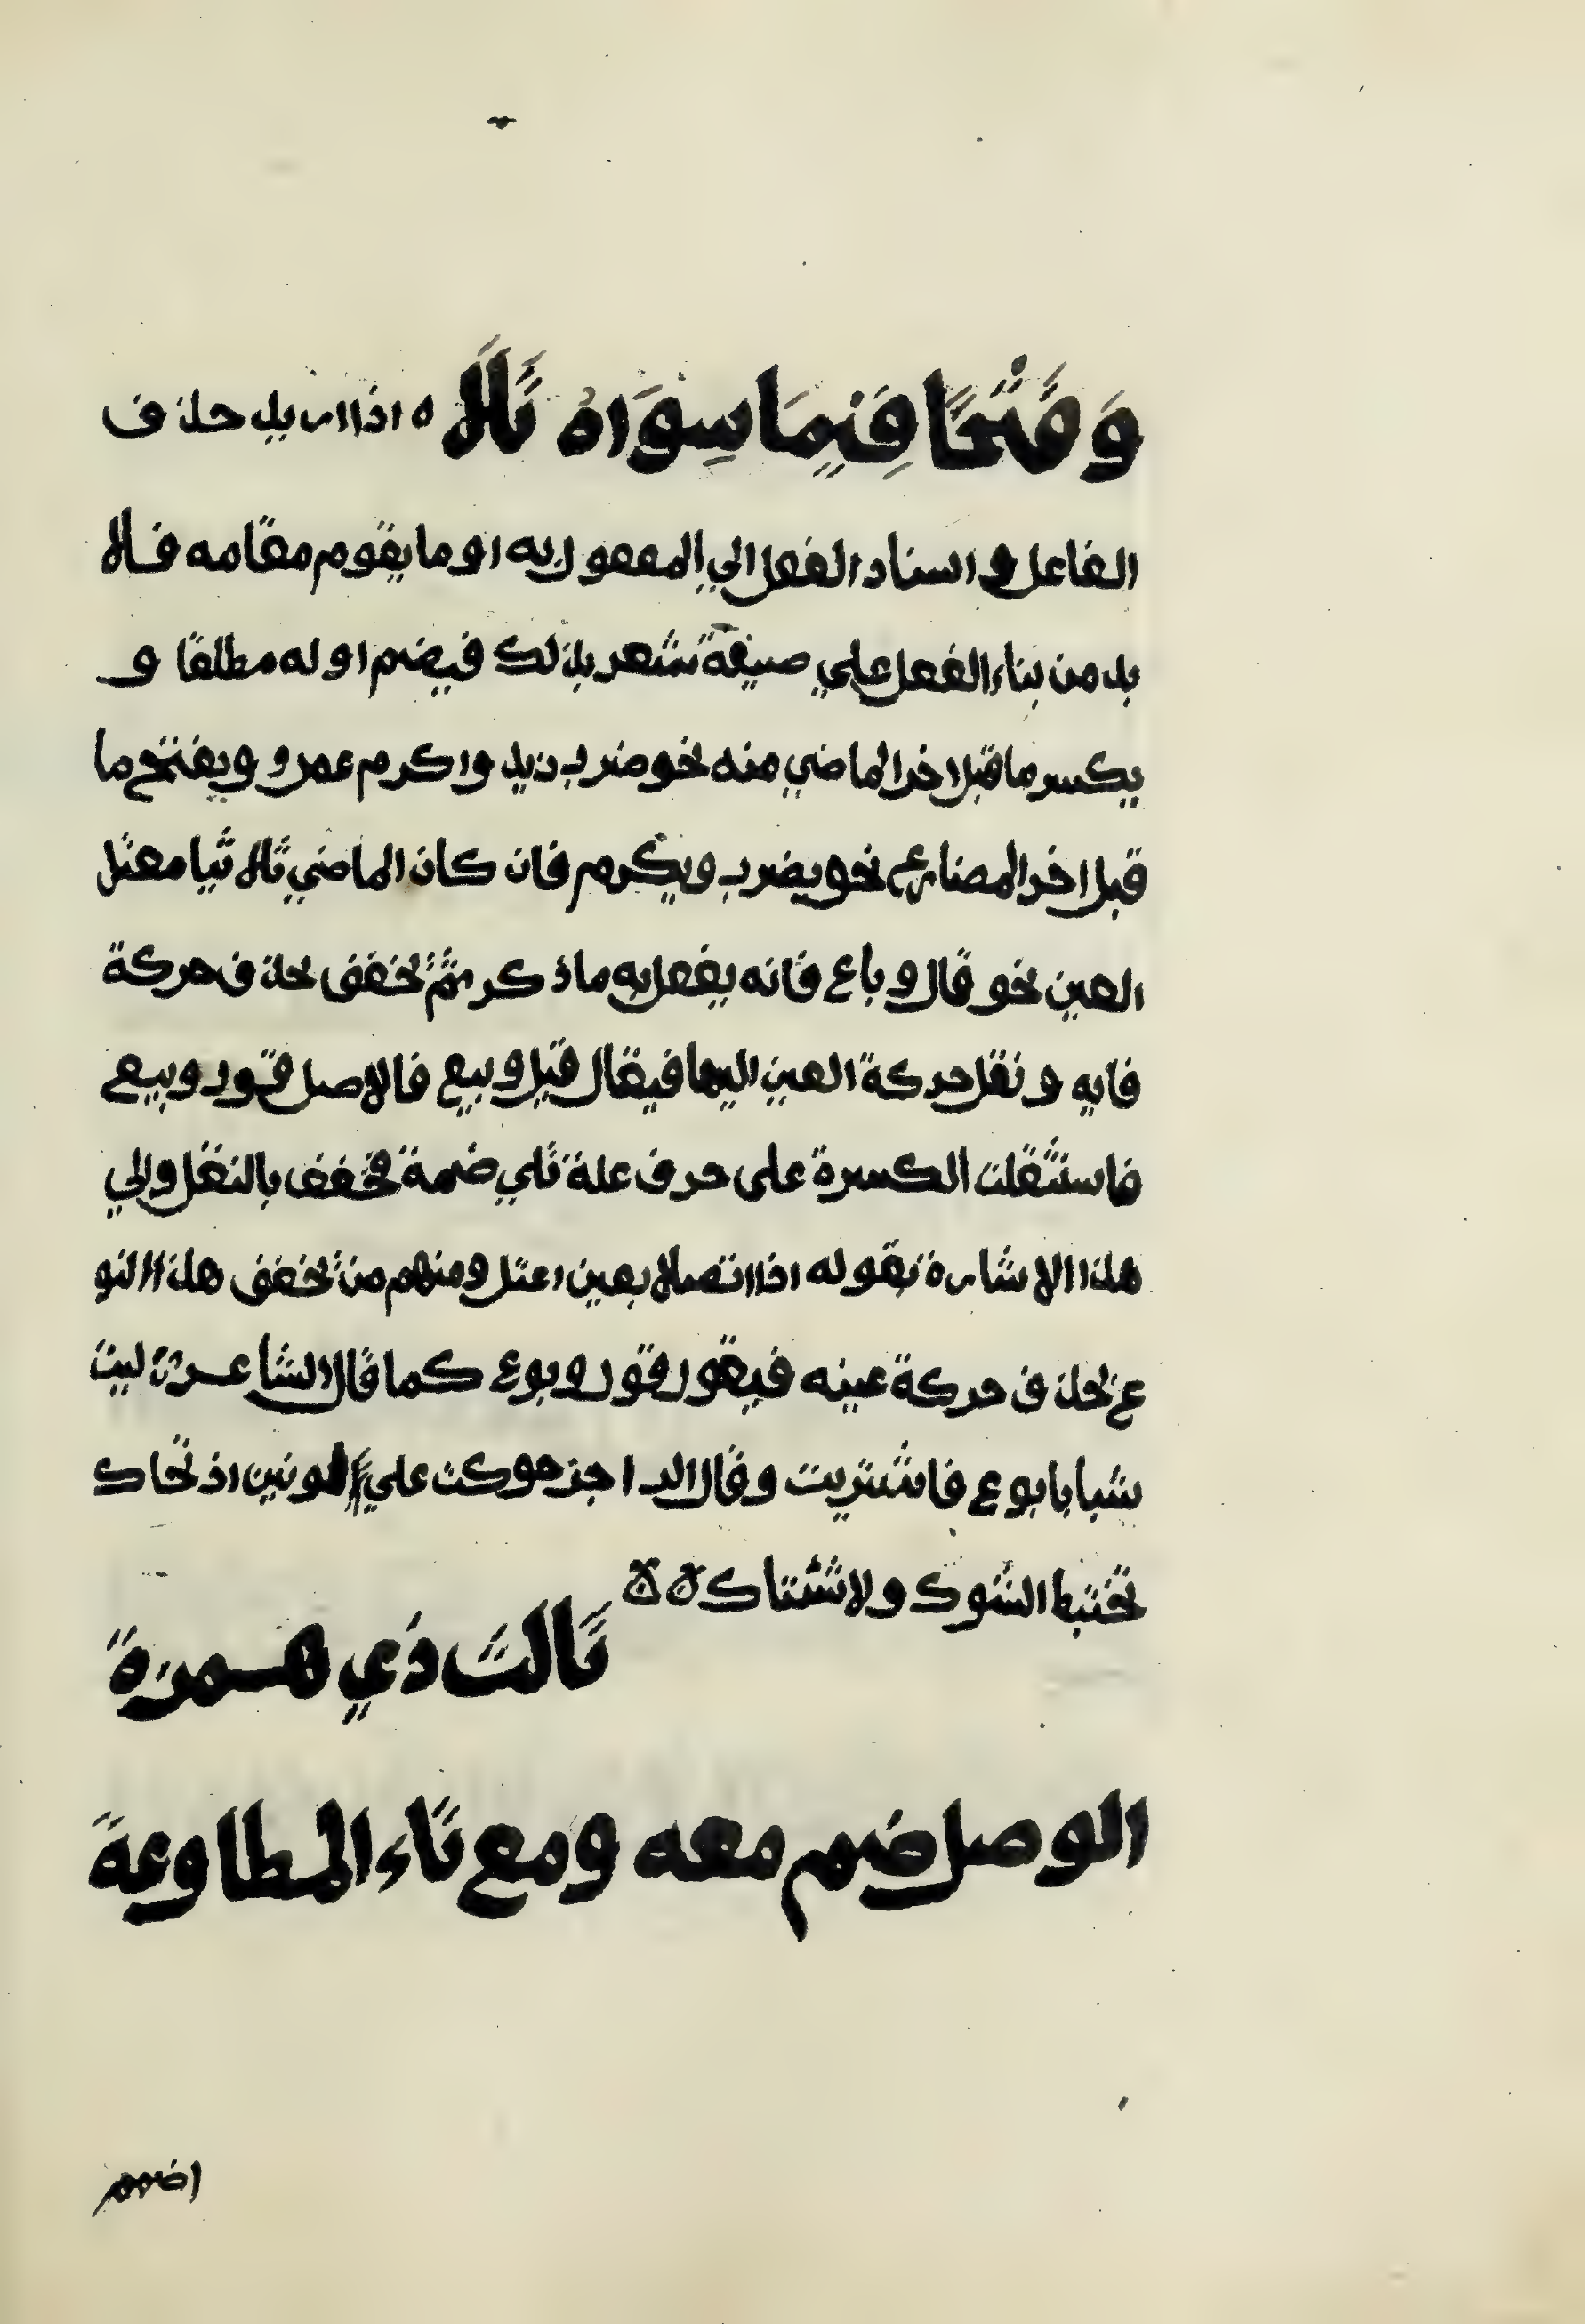 وَفَتْحًا فِيمَا سِوَاهُ تَلَا ه اذا اريد حذف
الفاعل و اسناد الفعل الي المفعول به او ما يقوم مقامه فلا
بد من بناء الفعل علي صيغة تشعر بذلك فيضم اوله مطلقا و
يكسر ما قبل اخر الماضي منه نحو ضرب زيد واكرم عمرو ويفتح ما
قبل اخر المضارع نحو يضرب ويكرم فان كان الماضي ثلاثيا معتل
العين نحو قال و باع فانه يفعل به ما ذكر ثم تخفف بحذف حركة
فايه و نقل حركة العين اليها فيقال قيل وبيع فالاصل قول وبيع
فاستثقلت الكسرة على حرف علة تلي ضمة فخفف بالنقل والي
هذا الاشارة بقوله اذا اتصلا بعين اعتل ومنهم من تخفف هذا النو
ع بحذف حركة عينه فيقول قول وبوع كما قال الشاعر ليت
شبابا بوع فاشتريت وقال الراجز حوكت علي نونين اذ تحاك
تختبط الشوك ولا تشتاك
ثَالثَ ذَي همزةَ
الوصل ضم معه ومع تاء المطاوعةَ
اضمم